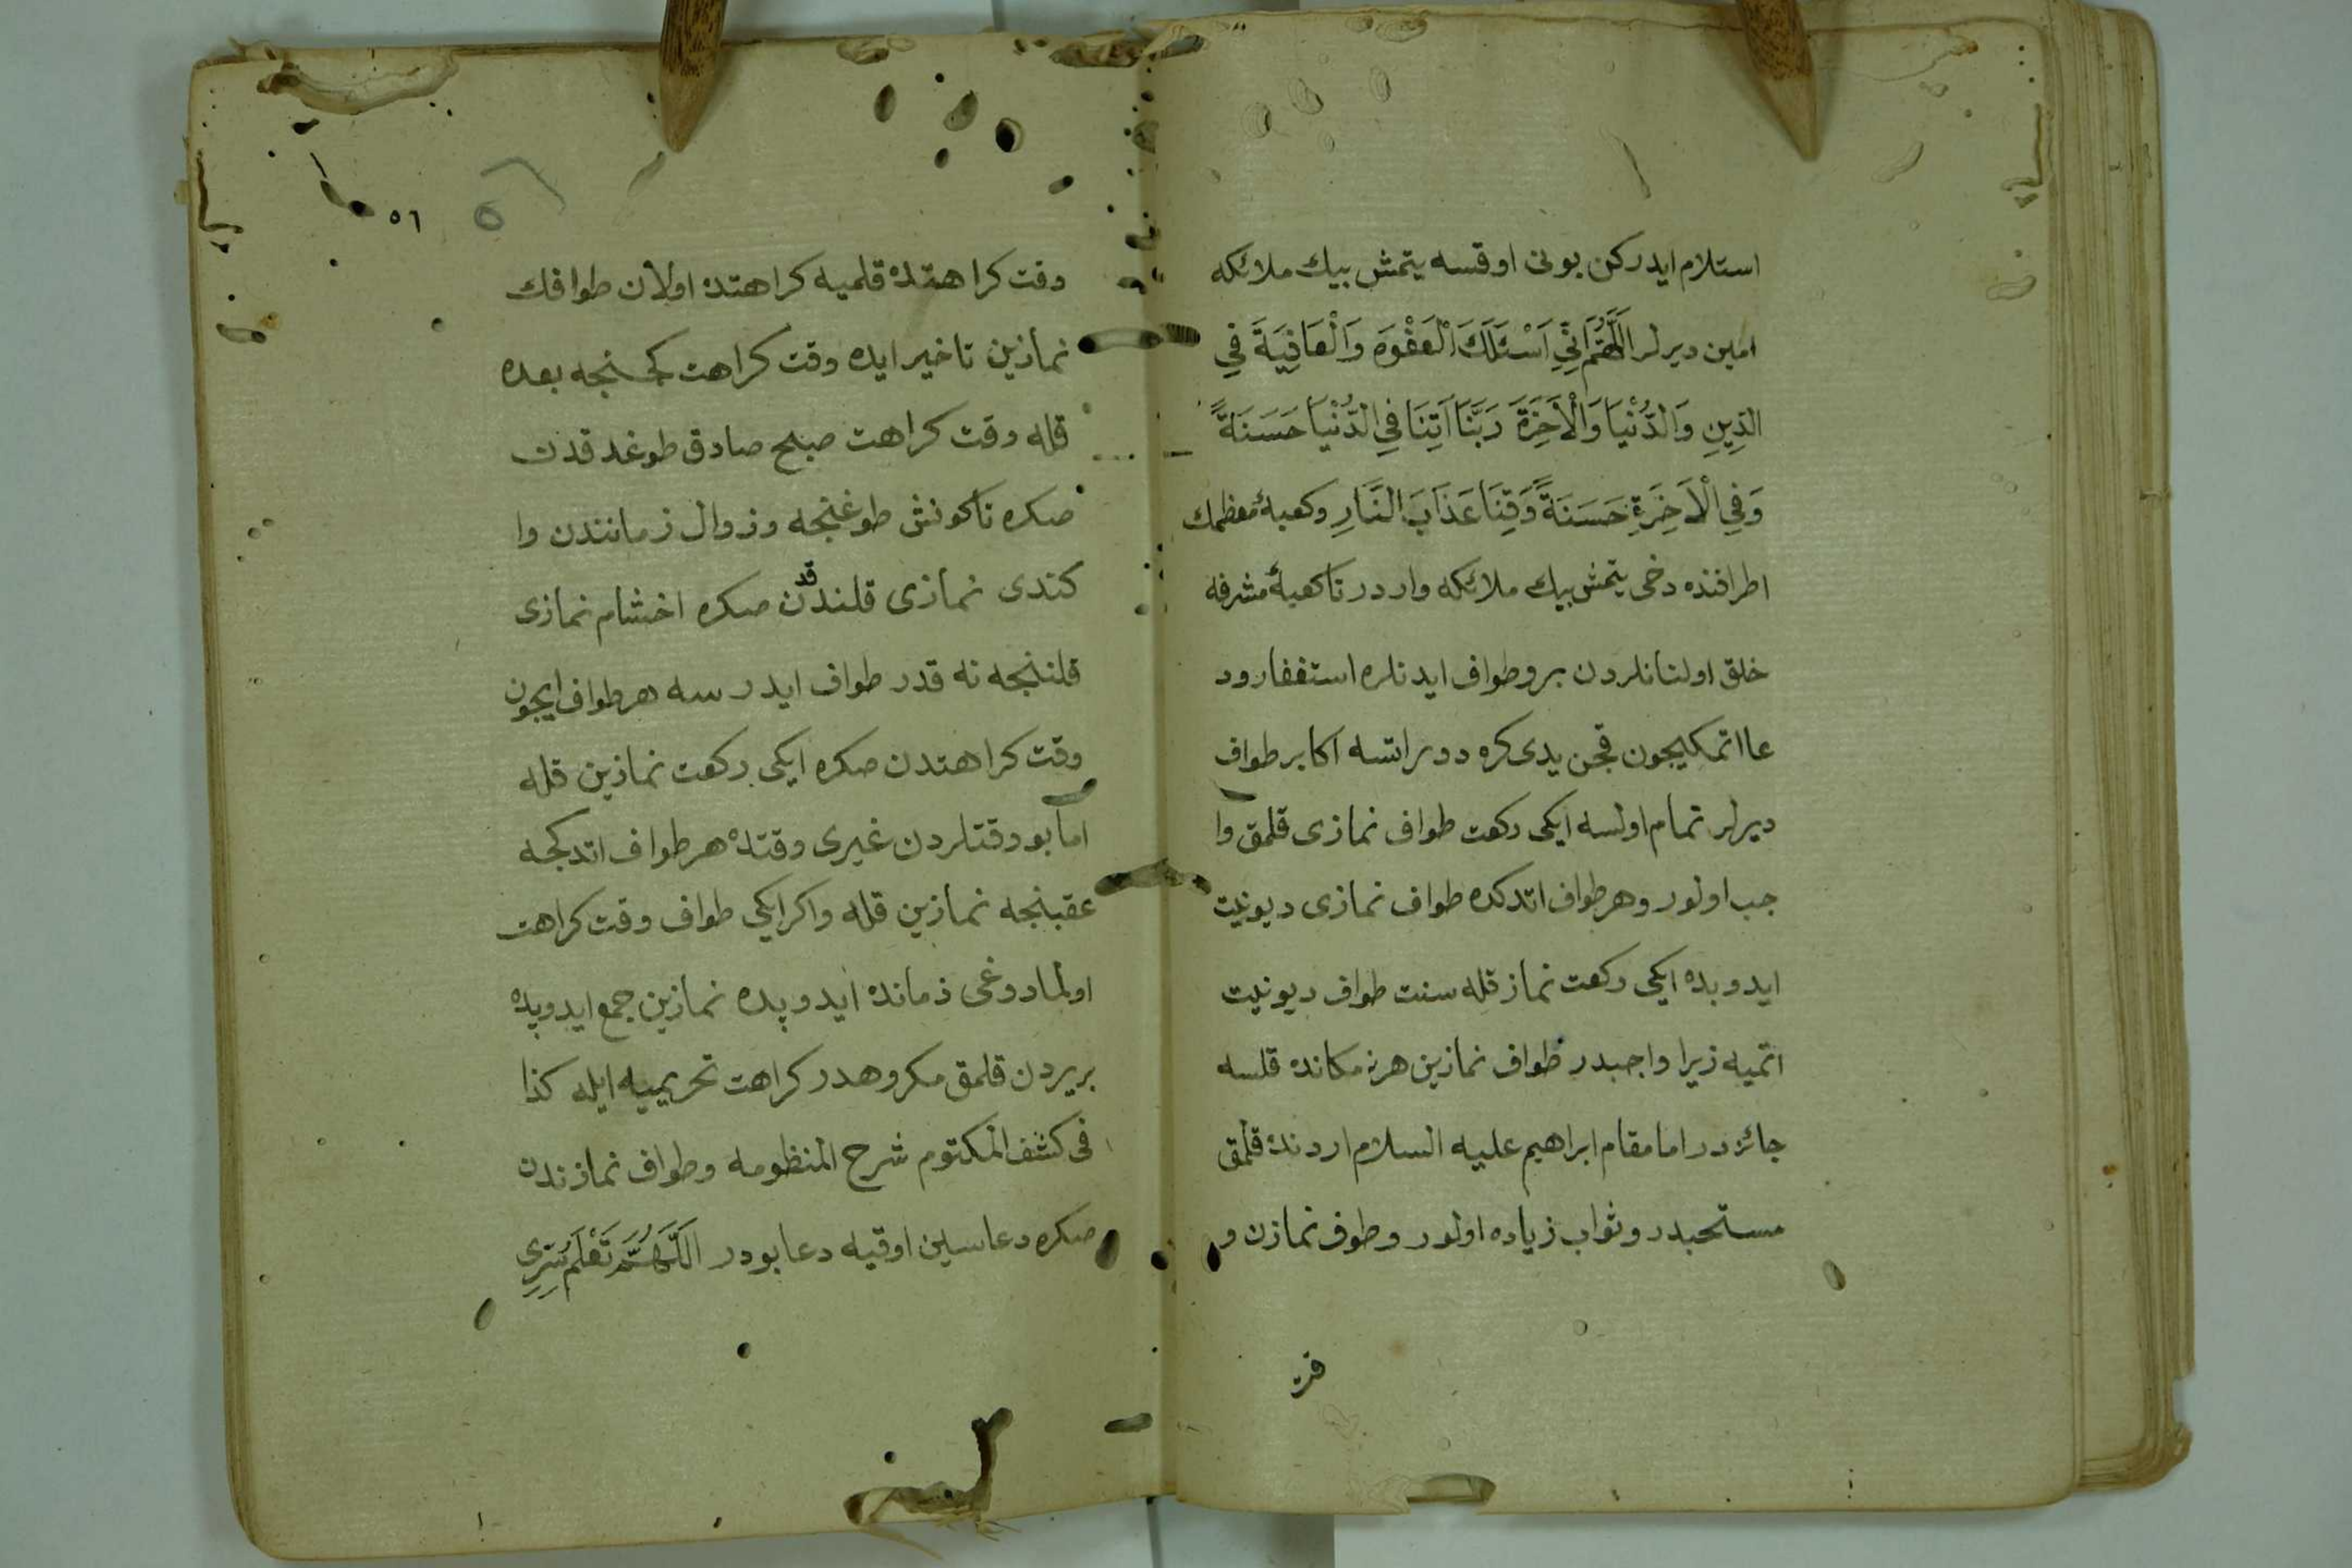 استلام ايدركن بونى اوقسه يتمش بيك ملائكه
امين ديرلر اَللَّهُمَّ اِنِّي اَسْئَلُكَ الْعَفْوَ وَالْعَافِيَةَ فِي
الدِّينِ وَالدُّنْيَا وَالْاَخِرَةَ رَبَّنَا اَتِنَا فِي الدُّنْيَا حَسَنَةً
وَفِي الْاَخِرَةِ حَسَنَةً وَقِنَا عَذَابَ النَّارِ وكعبهٔ معظمك
اطرافنده دخى يتمش بيك ملائكه واردر تا كعبهٔ مشرفه
خلق اولنانلردن برو طواف ايدنلره استغفار ود
عا اتمكيچون قچن يدى كره دور اتسه اكا بر طواف
ديرلر تمام اولسه ايكى ركعت طواف نمازى قلمق وا
جب اولور وهر طواف اتدكده طواف نمازى ديو نيت
ايدوبده ايكى ركعت نماز قله سنت طواف ديو نيت
اتميه زيرا واجبدر طواف نمازين هر نه مكانده قلسه
جائزدر اما مقام ابراهيم عليه السلام اردنده قلمق
مستحبدر وثواب زياده اولور وطوف نمازن و
٥٦
وقت كراهتده قلميه كراهتده اولان طوافك
نمازين تاخير ايده وقت كراهت كچنجه بعده
قله وقت كراهت صبح صادق طوغدقدن
صكره تا كونش طوغنجه وزوال زمانندن وا
كندى نمازى قلندقدن صكره اخشام نمازى
قلننجه نه قدر طواف ايدرسه هر طواف ايچون
وقت كراهتدن صكره ايكى ركعت نمازين قله
اما بو وقتلردن غيرى وقتده هر طواف اتدكجه
عقبنجه نمازين قله واكر ايكى طواف وقت كراهت
اولمادوغى زمانده ايدوپده نمازين جمع ايدوپده
بريردن قلمق مكروهدر كراهت تحريميه ايله كذا
فى كشف المكتوم شرح المنظومه وطواف نمازندن
صكره دعاسين اوقيه دعا بودر اَللَّهُمَّ تَعْلَمُ سِرِّي